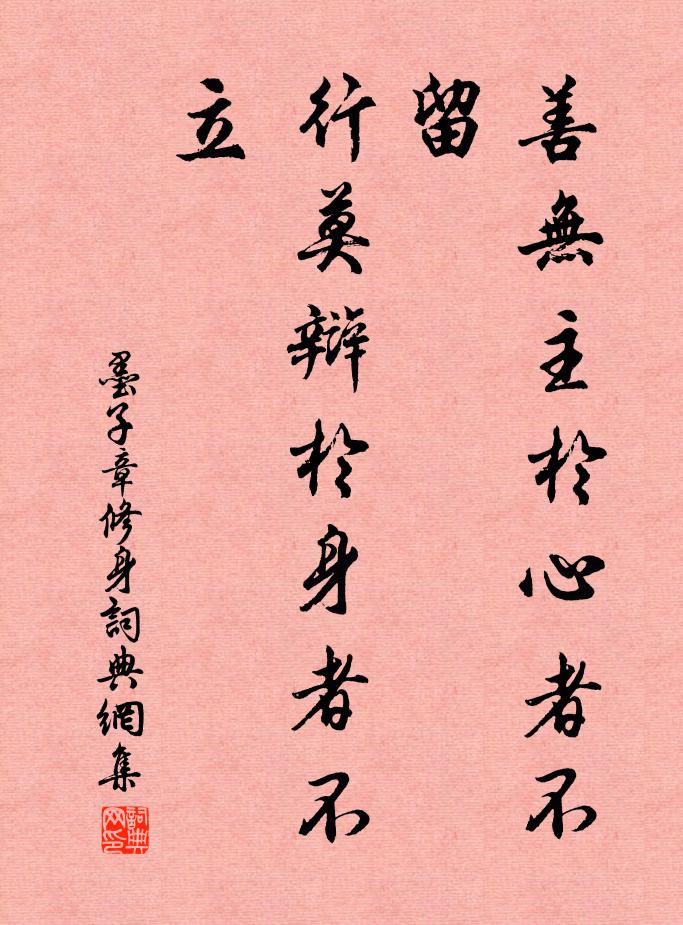 善無主於心者不
留
行莫辯於身者不
立
墨子章修身詞典網集
詞典网印